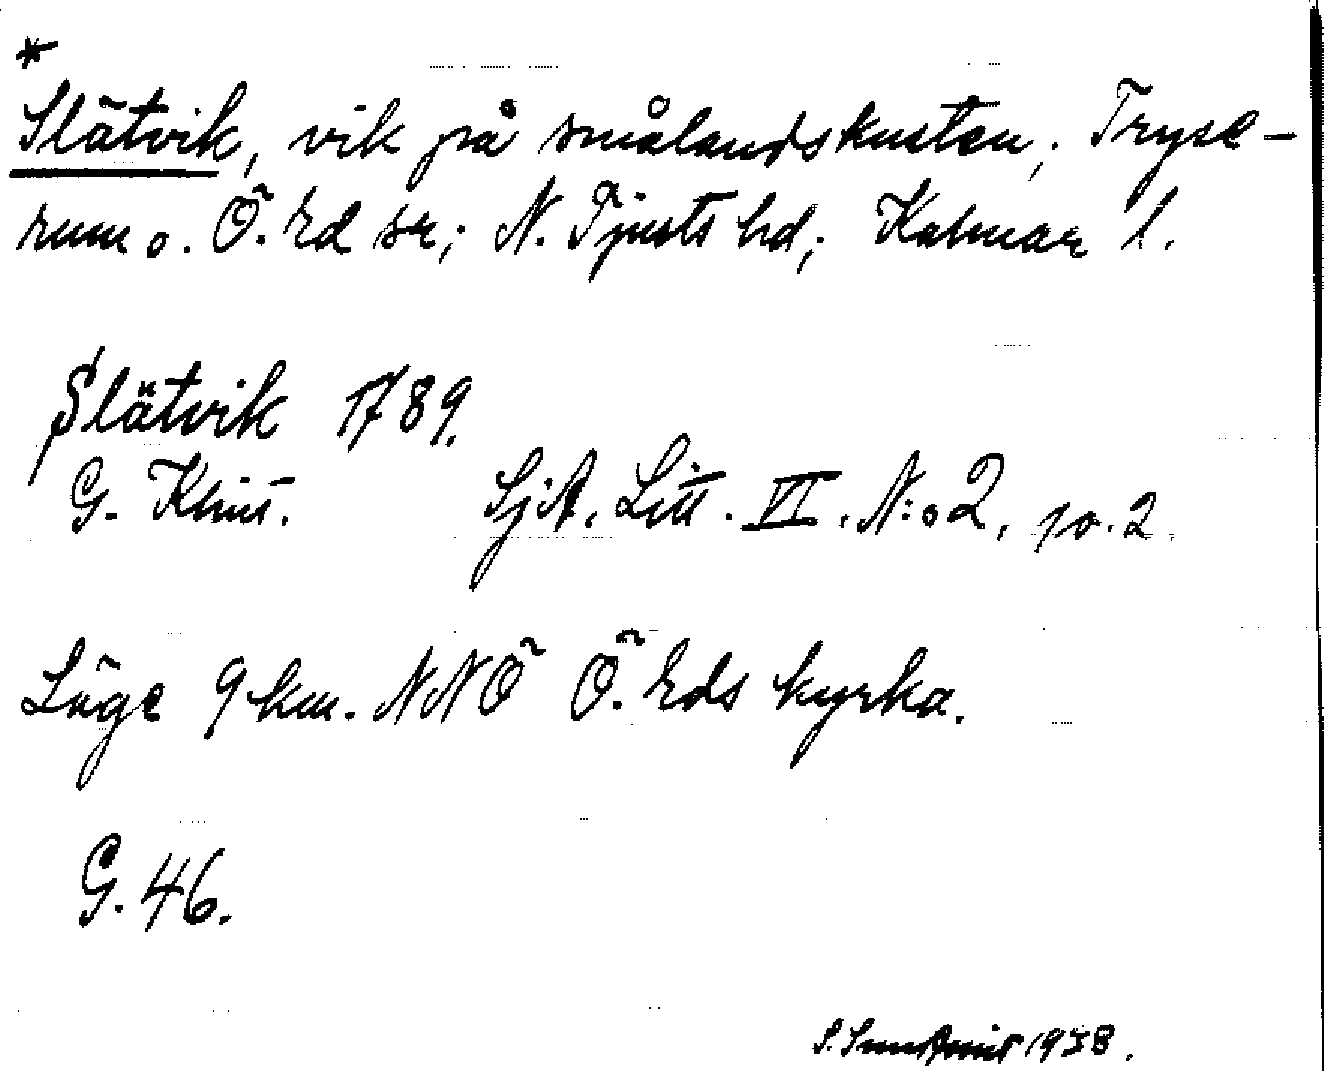 *
Slätvik, vik på smålandskusten; Tryse-
rum o. Ö. Ed sr; N. Tjusts hd; Kalmar l.
Slätvik 1789.
G. Klint. SjA. Litt. VI. N:o 2, po. 2.
Läge 9 km. NNÖ Ö. Eds kyrka.
G. 46.
S. 1938.